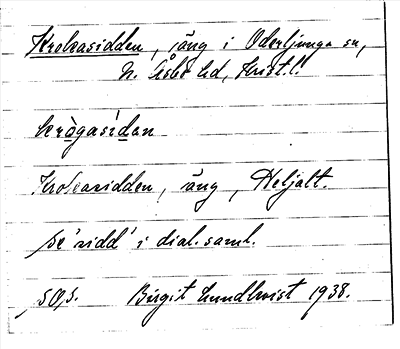 Krokasidden, äng i Oderljunga sn,
N. Åsbo hd, Krist. l.
krògasídan
Krokasidden, äng, Heljalt.
se 'sidd' i dial. saml.
Birgit Lundkvist 1938.